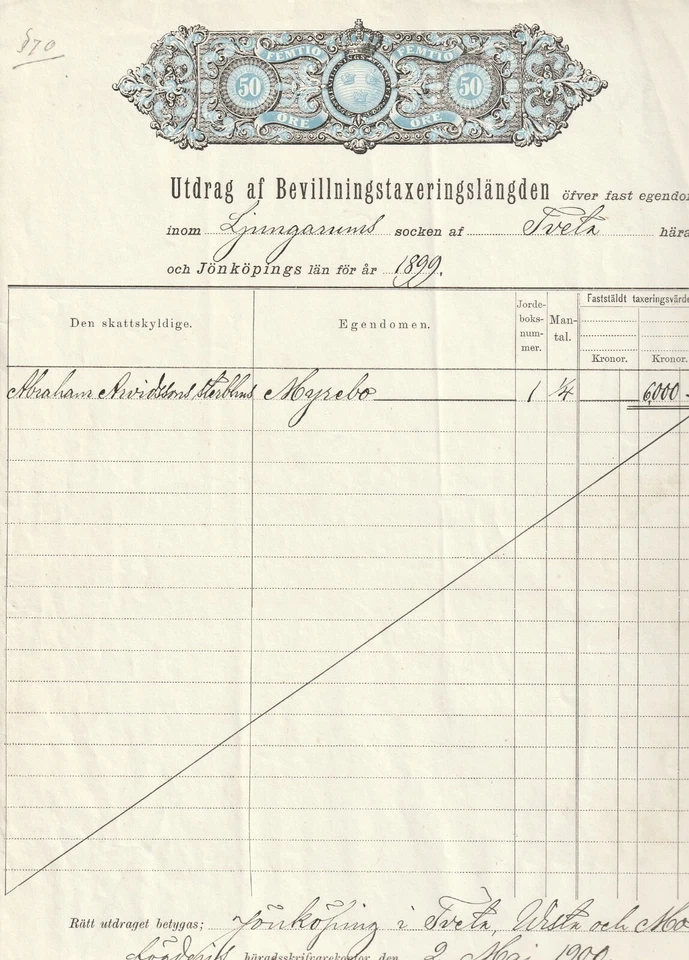 §70
FEMTIO FEMTIO
50 50
ÖRE ÖRE
Utdrag af Bevillningstaxeringslängden öfver fast egendom
inom Ljungarums socken af Tveta hära
och Jönköpings län för år 1899.
Den skattskyldige. Egendomen. Jorde-boks-num-mer. Man-tal. Faststäldt taxeringsvärde
Kronor. Kronor.
Abraham Arvidssons sterbhus Myrebo 1 1/4 6,000 -
Rätt utdraget betygas; Jönköping i Tveta, Wista och Mo
häradsskrifvarekontor den 2 Maj 1900.